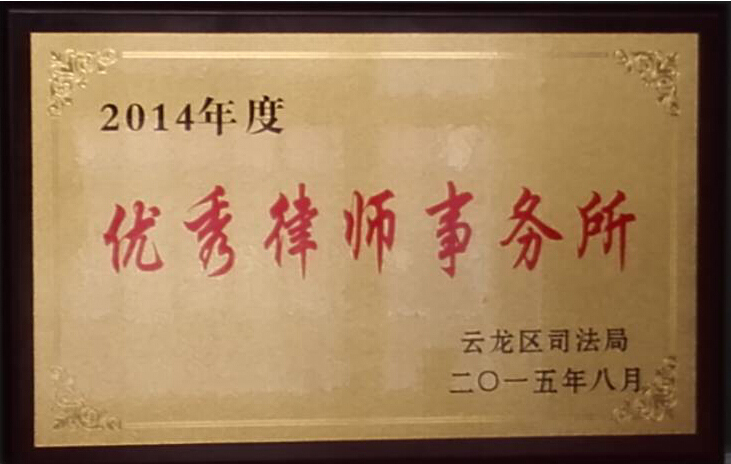 2014年度
优秀律师事务所
云龙区司法局
二〇一五年八月